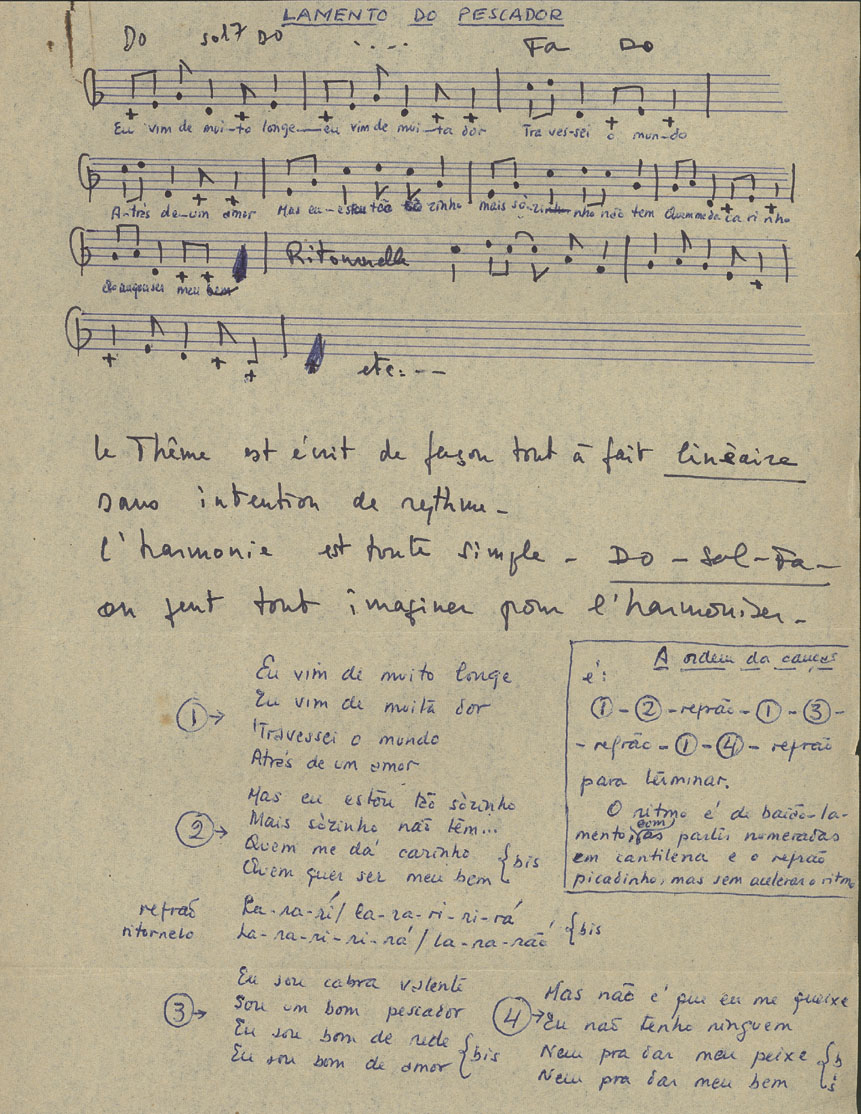 LAMENTO DO PESCADOR
Do sol7 Do .... Fa Do
Eu vim de mui-to longe — eu vim de mui-ta dor Traves-sei o mun-do
A-trás de-um amor Mas eu-estou tão sozinho mais sò-zinho não tem Quem me da ca ri nho
Quem quer ser meu bem Ritournelle
etc: --
le Thême est écrit de façon tout à fait linéaire
sans intention de rythme -
l'harmonie est toute simple - DO - Sol - Fa -
on peut tout imaginer pour l'harmoniser -
Eu vim de muito longe
Eu vim de muita dor
① → Travessei o mundo
Atrás de um amor
Mas eu estou tão sòzinho
② → Mais sòzinho não têm...
Quem me dá carinho
Quem quer ser meu bem { bis
A ordem da canção
é:
① - ② - refrão - ① - ③ -
- refrão - ① - ④ - refrão
para términar.
O ritmo é de baião-la-
mento, com as partes numeradas
em cantilena e o refrão
picadinho, mas sem acelerar o ritmo
refrão La-ra-rí / La-ra-ri-ri-rá
ritornelo La-ra-ri-ri-rá / la-ra-rão { bis
Eu sou cabra valente
③ → Sou um bom pescador
Eu sou bom de rede
Eu sou bom de amor { bis
Mas não é que eu me queixe
④ → Eu não tenho ninguem
Nem pra dar meu peixe
Nem pra dar meu bem { bis